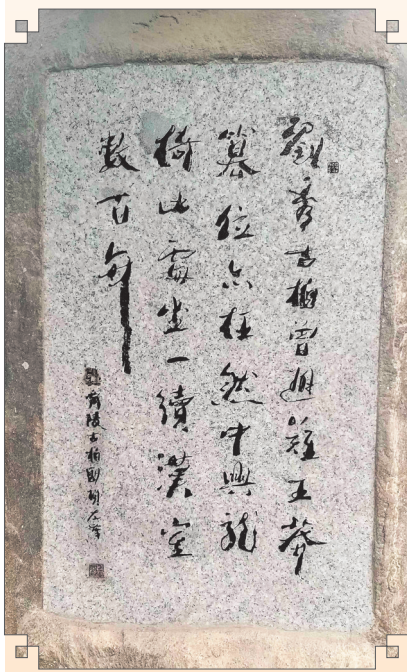 劉秀古柏曾避難王莽
篡位亦枉然中興龍
椅此處坐一續漢室
數百年
陵古柏